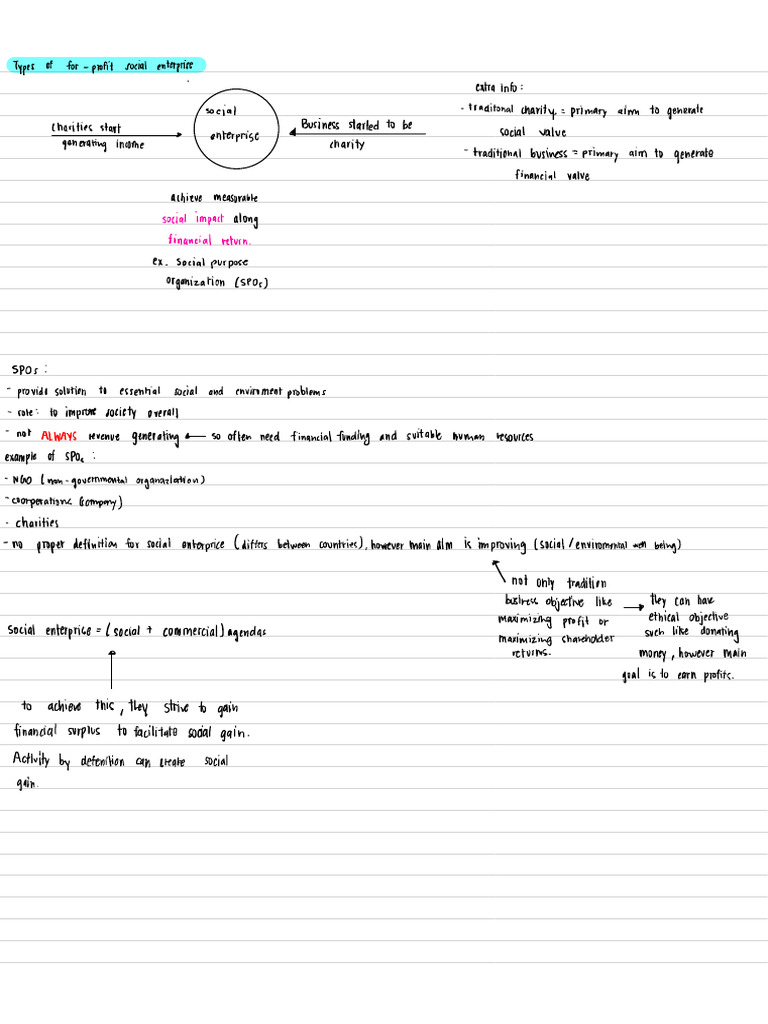 Types of for-profit social enterprise
extra info:
- traditonal charity = primary aim to generate
social value
- traditional business = primary aim to generate
financial value
charities start
generating income
social
enterprise
Business started to be
charity
achieve measurable
social impact along
financial return.
ex. social purpose
organization (SPOs)
SPOs:
- provide solution to essential social and enviroment problems
- role: to improve society overall
- not ALWAYS revenue generating ← so often need financial funding and suitable human resources
example of SPOs:
- NGO (non-governmental organaziation)
- coorperations (company)
- charities
- no proper definition for social enterprise (differs between countries), however main aim is improving (social/environmental well being)
not only tradition
business objective like
maximizing profit or
maximizing shareholder
returns.
they can have
ethical objective
such like donating
money, however main
goal is to earn profits.
social enterprise = (social + commercial) agendas
to achieve this, they strive to gain
financial surplus to facilitate social gain.
Activity by defenition can create social
gain.